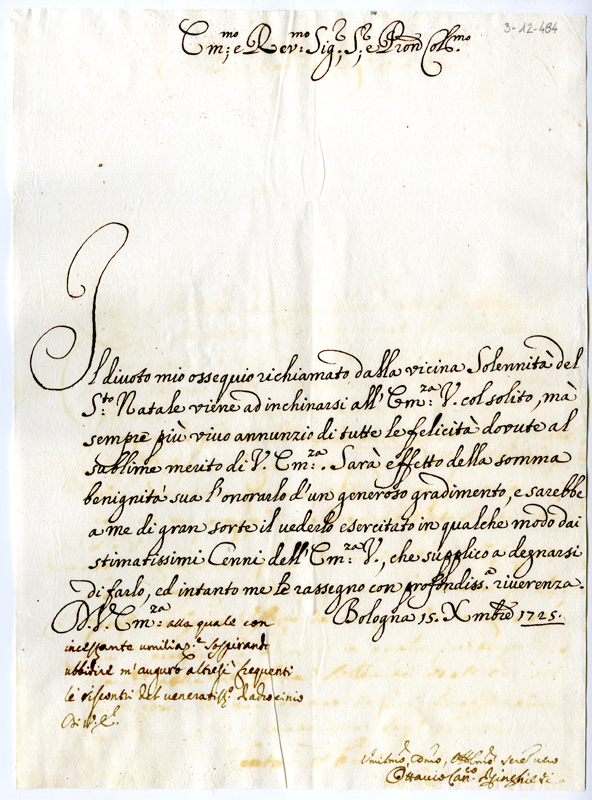 3-12-484
Em:mo e Rev:mo Sig:r, S:r e Pron Col:mo
Il divoto mio ossequio richiamato dalla vicina Solennità del
S:to Natale viene ad inchinarsi all'Em:za V. col solito, mà
sempre più vivo annunzio di tutte le felicità dovute al
sublime merito di V. Em:za. Sarà effetto della somma
benignità sua l'onorarlo d'un generoso gradimento, e sarebbe
a me di gran sorte il vederlo esercitato in qualche modo dai
stimatissimi Cenni dell'Em:za V., che supplico a degnarsi
di farlo, ed intanto me le rassegno con profondiss:a riverenza.
D.V. Em:za alla quale con
Bologna 15. Xmbre 1725.
incessante umiliaz:e sospirando
ubbidire m'auguro altresì frequenti
le riscontri del veneratiss:o Padrocinio
Di V.E.
Umilmo, Dmo, Obblmo Serv vero
Ottavio Can:co